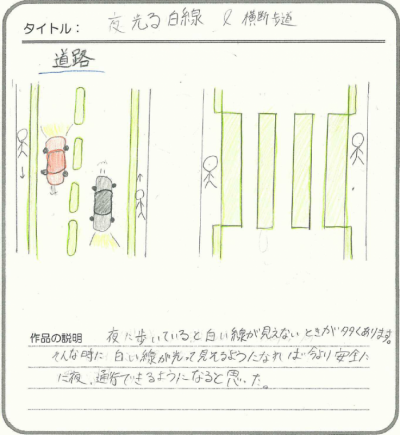 タイトル： 夜光る白線 & 横断歩道
道路
作品の説明 夜に歩いていると白い線が見えないときが多くあります。
そんな時に白い線が光って見えるようになれば今より安全に
に夜、通行できるようになると思いた。